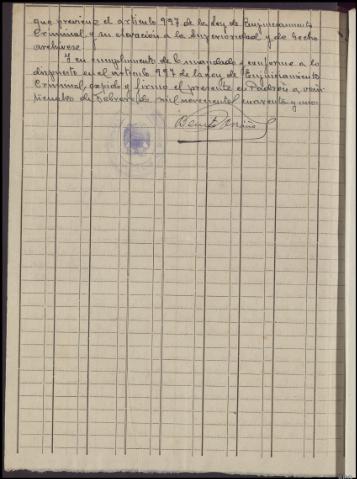 que previene el artículo 997 de la Ley de Enjuiciamiento
Criminal y su elevación a la Superioridad y de hecho
archivese.
Y en cumplimiento de lo mandado y conforme a lo
dispuesto en el artículo 997 de la Ley de Enjuiciamiento
Criminal, expido y firmo el presente en Padrón a vein
ticuatro de Febrero de mil novecientos cuarenta y uno.
Benito